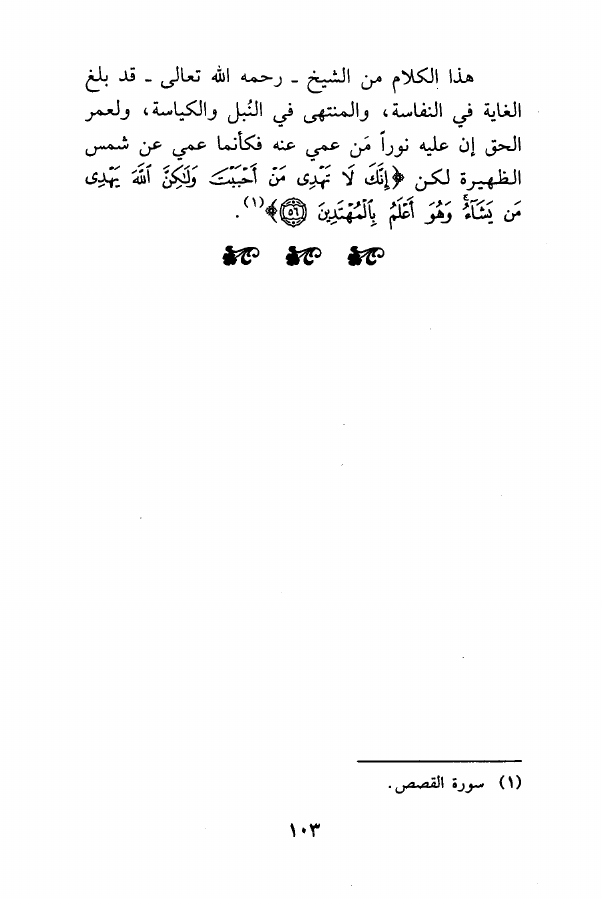 هذا الكلام من الشيخ ـ رحمه الله تعالى ـ قد بلغ
الغاية في النفاسة، والمنتهى في النُبل والكياسة، ولعمر
الحق إن عليه نوراً مَن عمي عنه فكأنما عمي عن شمس
الظهيرة لكن ﴿إِنَّكَ لَا تَهْدِى مَنْ أَحْبَبْتَ وَلَٰكِنَّ ٱللَّهَ يَهْدِى
مَن يَشَآءُ ۚ وَهُوَ أَعْلَمُ بِٱلْمُهْتَدِينَ ٥٦﴾(١).
(١) سورة القصص.
١٠٣